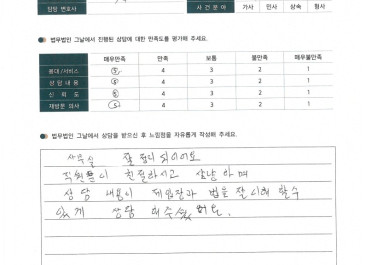 담당 변호사 사 건 분 야 가사 민사 상속 형사
법무법인 그날에서 진행된 상담에 대한 만족도를 평가해 주세요.
매우만족 만족 보통 불만족 매우불만족
응대/서비스 5 4 3 2 1
상 담 내 용 5 4 3 2 1
신 뢰 도 5 4 3 2 1
재방문 의사 5 4 3 2 1
법무법인 그날에서 상담을 받으신 후 느낌점을 자유롭게 작성해 주세요.
사무실 잘 정리 되어있어요
직원들이 친절하시고 상냥하며
상담 내용이 제 입장과 법을 잘 이해 할수
있게 상담 해주셨어요.